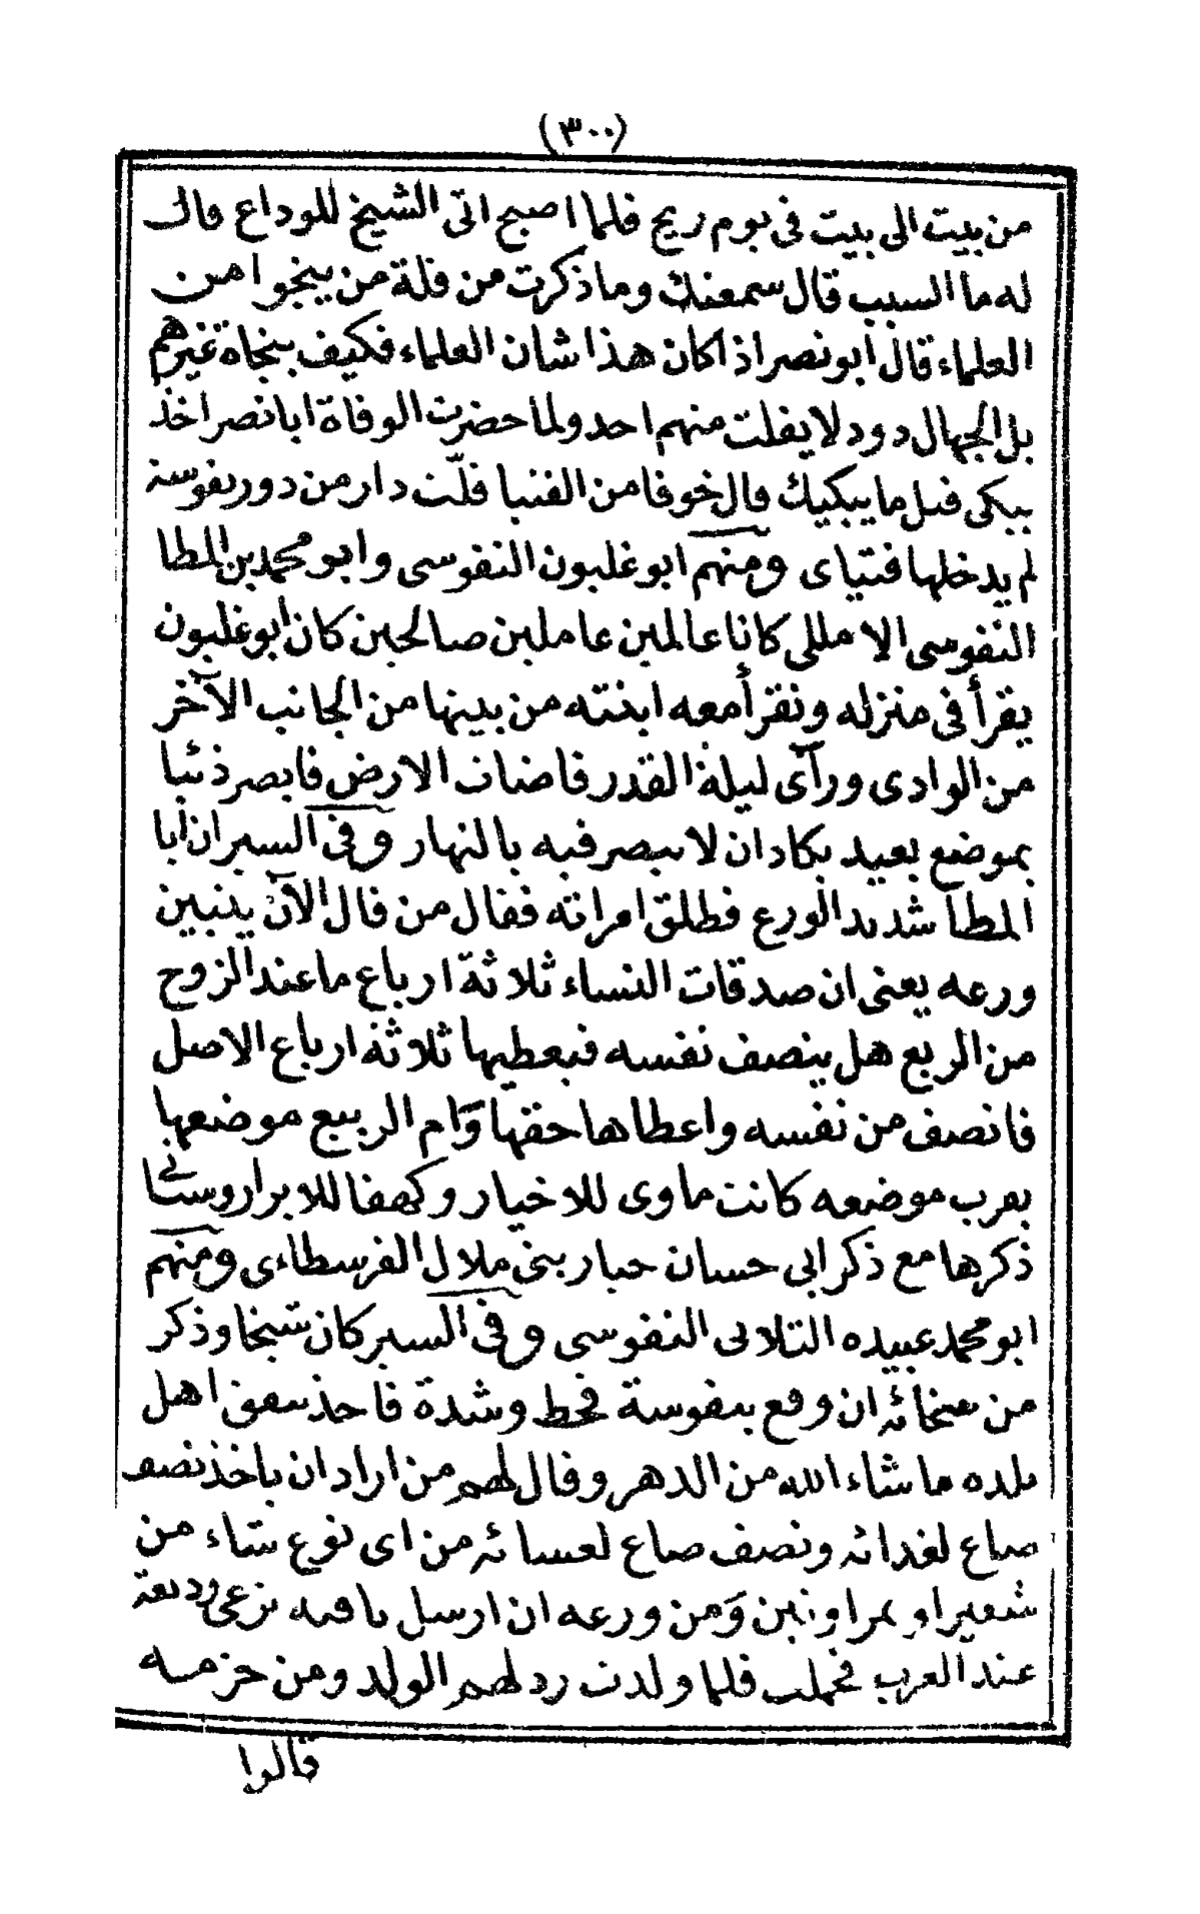 (٣٠٠)
من بيت الى بيت فى يوم ريح فلما اصبح اتى الشيخ للوداع قال
له ما السبب قال سمعتك وما ذكرت من قلة من ينجوا من
العلماء قال ابو نصر اذا كان هذا شان العلماء فكيف بنجاة غيرهم
بل الجهال دود لا يفلت منهم احد ولما حضرت الوفاة ابا نصر اخذ
يبكى فقيل ما يبكيك قال خوفا من الفتيا قلّت دار من دور نفوسة
لم يدخلها فتياى ومنهم ابو غلبون النفوسى وابو محمد بن المطا
النفوسى الامللى كانا عالمين عاملين صالحين كان ابو غلبون
يقرأ فى منزله وتقرأ معه ابنته من بيتها من الجانب الآخر
من الوادى ورآى ليلة القدر فاضات الارض فابصر ذئبا
بموضع بعيد يكاد ان لا يبصر فيه بالنهار وفى السير ان ابا
المطآ شديد الورع فطلق امراته فقال من قال الآن يتبين
ورعه يعنى ان صدقات النساء ثلاثة ارباع ما عند الزوج
من الربع هل ينصف نفسه فيعطيها ثلاثة ارباع الاصل
فانصف من نفسه واعطاها حقها وَام الربيع موضعها
بقرب موضعه كانت ماوى للاخيار وكهفا للابرار وسياتى
ذكرها مع ذكر ابى حسان خيار بنى ملال الفرسطاءى ومنهم
ابو محمد عبيده التلاتى النفوسى وفى السير كان شيخا وذكر
من سخائه ان وقع بنفوسة قحط وشدة فاخذ سقى اهل
بلده ما شاء الله من الدهر وقال لهم من اراد ان ياخذ نصف
صاع لغدائه ونصف صاع لعسائه من اى نوع شاء من
شعير او تمر او تين وَمن ورعه ان ارسل ناقته ترعى وديعة
عند العرب فحملت فلما ولدت رد لهم الولد ومن حزمه
قالوا